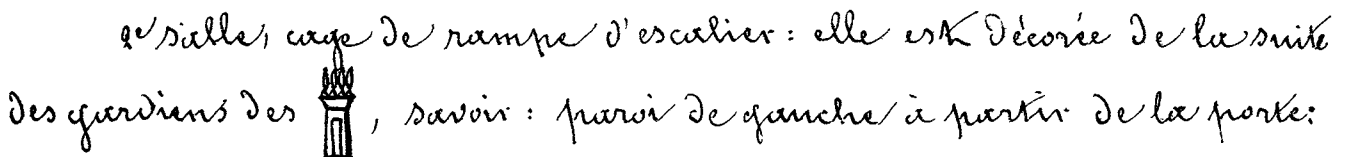 2e salle, cage de rampe d'escalier : elle est décorée de la suite
des gardiens des , savoir : paroi de gauche à partir de la porte :